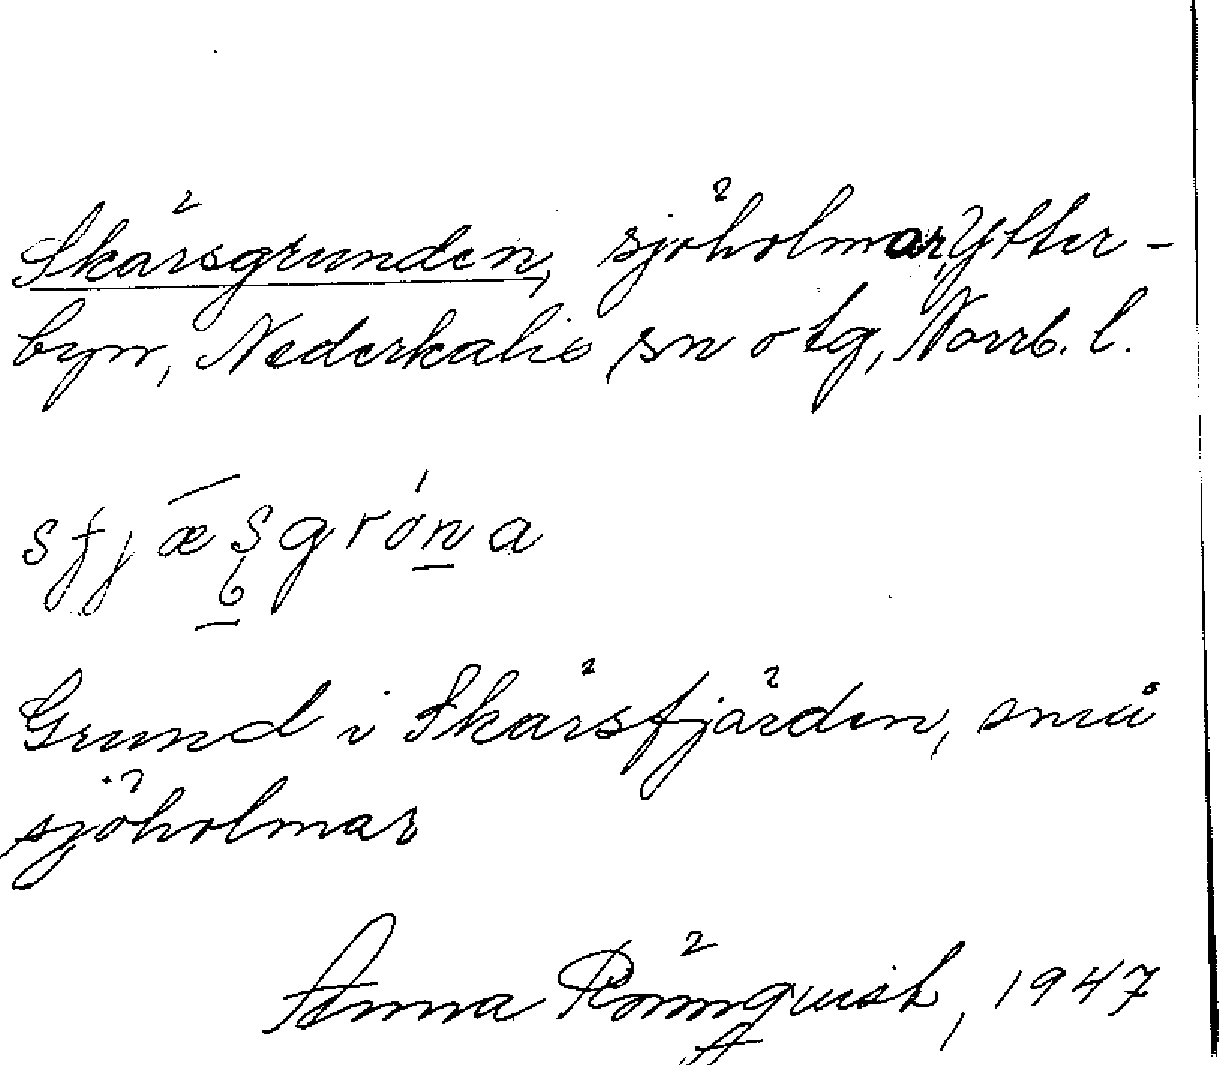 Skärsgrunden, sjöholmar, Ytter-
byn, Nederkalix sn o tg, Norrb. l.
Grund i Skärsfjärden, små
sjöholmar
Anna Rönnquist, 1947